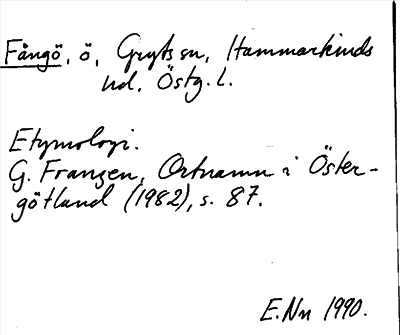 Fångö, ö, Gryts sn, Hammarkinds
hd. Östg. l.
Etymologi.
G. Franzén, Ortnamn i Öster-
götland (1982), s. 87.
E.Nn 1990.